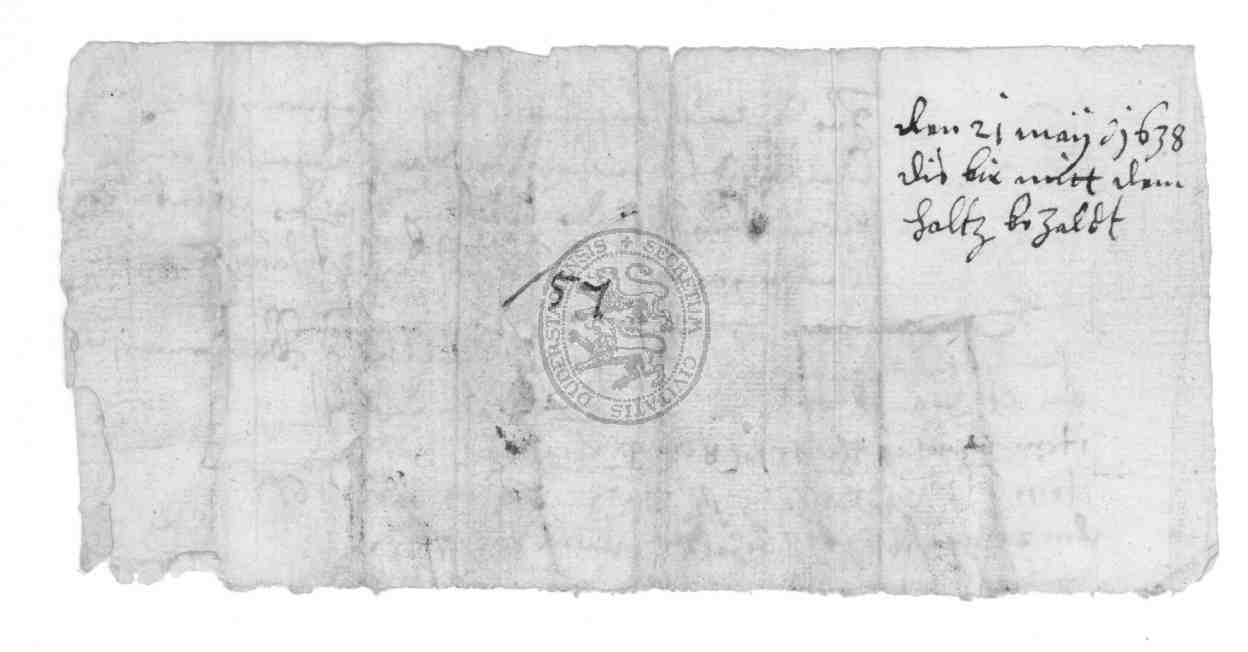 den 21 maÿ 1638
dis bir mitt dem
saltz bezaldt
57
SECRETUM CIVITATIS DUDERSTATENSIS